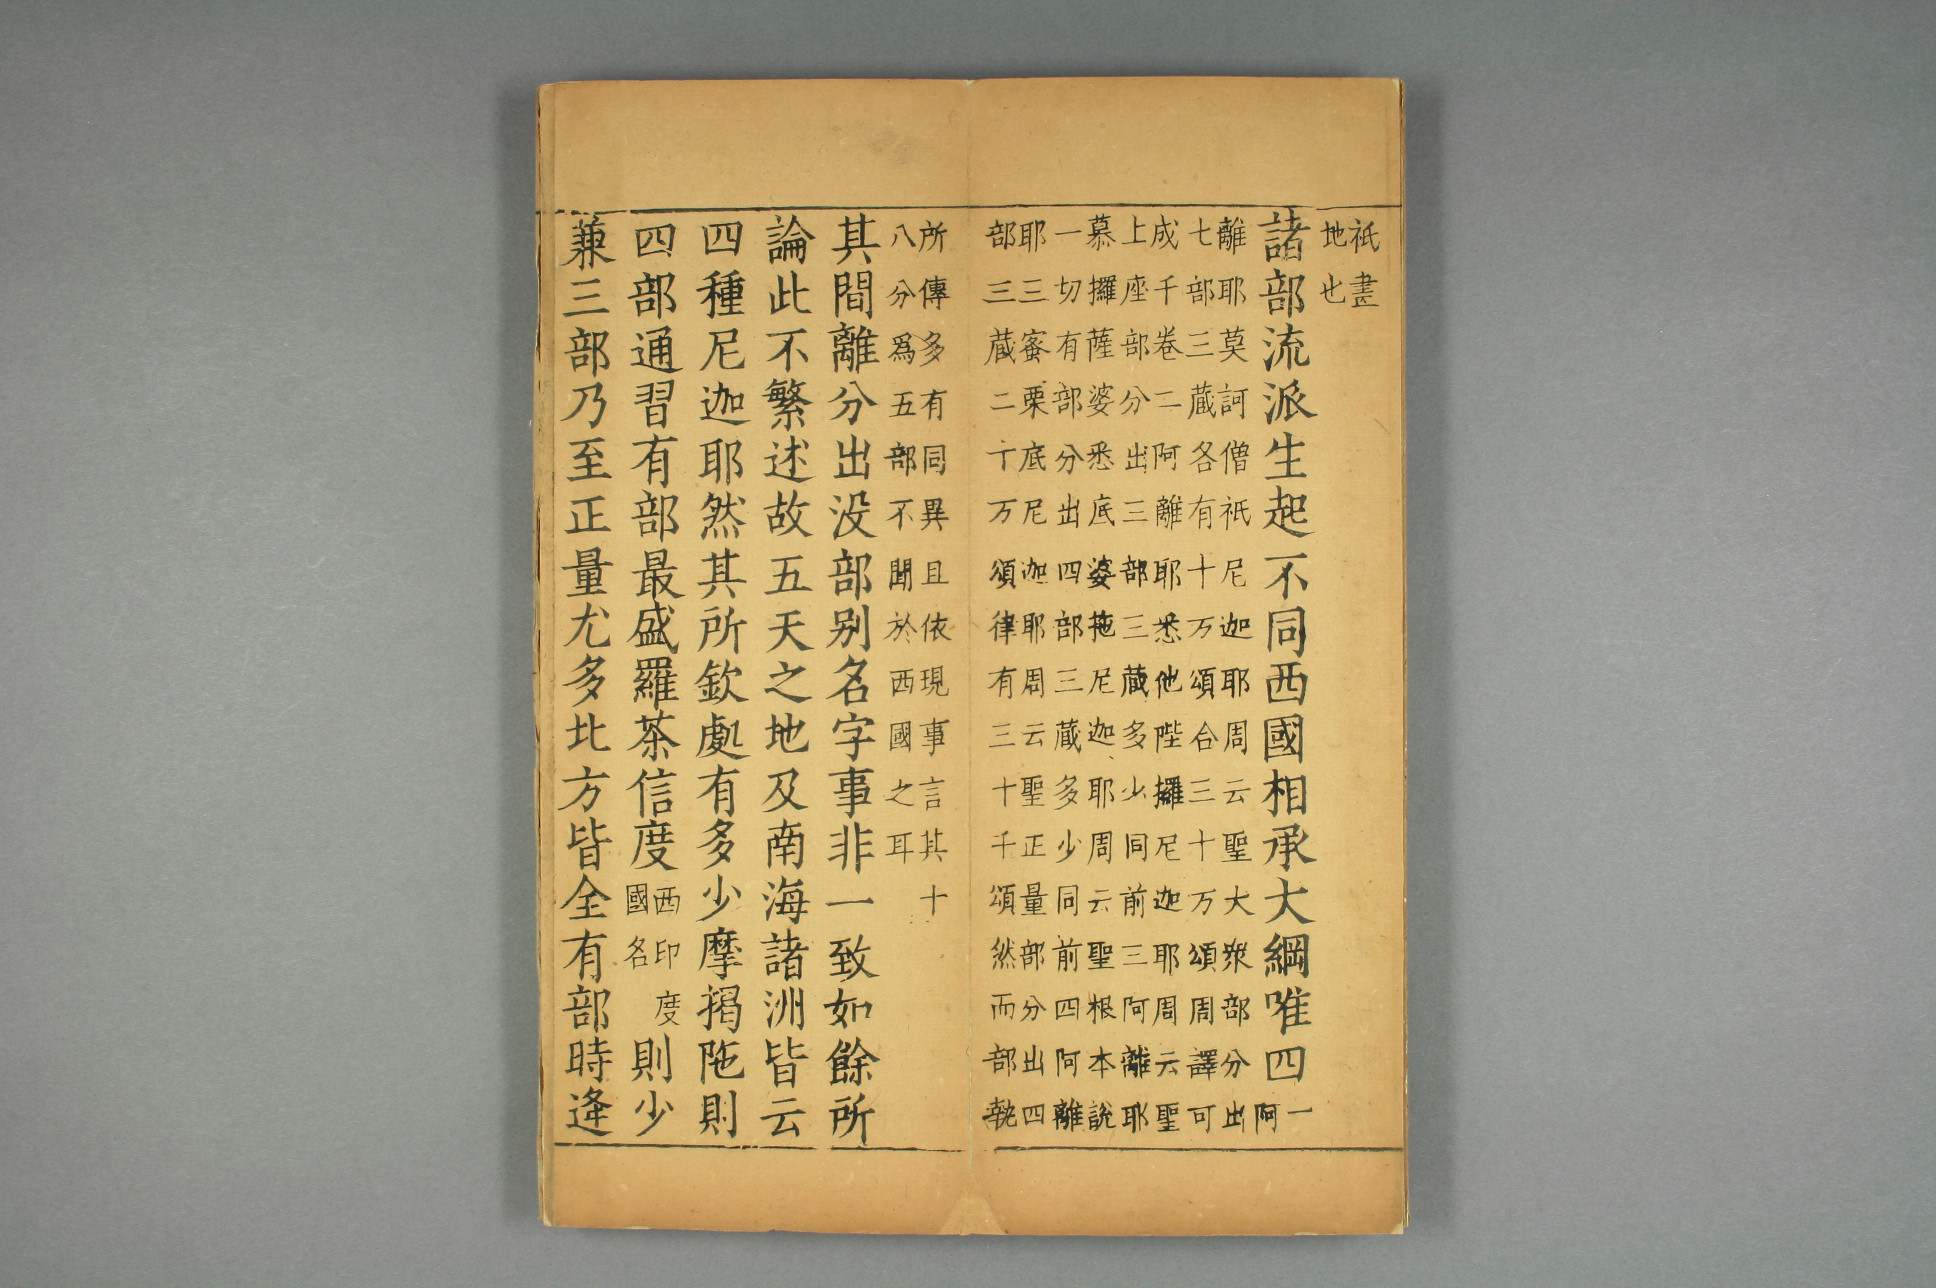 祇畫
地也
諸部流派生起不同西國相承大綱唯四一阿
離耶莫訶僧祇尼迦耶周云聖大衆部分出
七部三蔵各有十万頌合三十万頌周譯可
成千卷二阿離耶悉他陛攞尼迦耶周云聖
上座部分出三部三蔵多少同前三阿離耶
慕攞薩婆悉底婆拖尼迦耶周云聖根本說
一切有部分出四部三蔵多少同前四阿離
耶三蜜栗底尼迦耶周云聖正量部分出四
部三蔵二十万頌律有三十千頌然而部執
所傳多有同異且依現事言其十
八分爲五部不聞於西國之耳
其間離分出没部别名字事非一致如餘所
論此不繁述故五天之地及南海諸洲皆云
四種尼迦耶然其所欽處有多少摩揭陁則
四部通習有部最盛羅茶信度西印度國名則少
兼三部乃至正量尤多北方皆全有部時逢